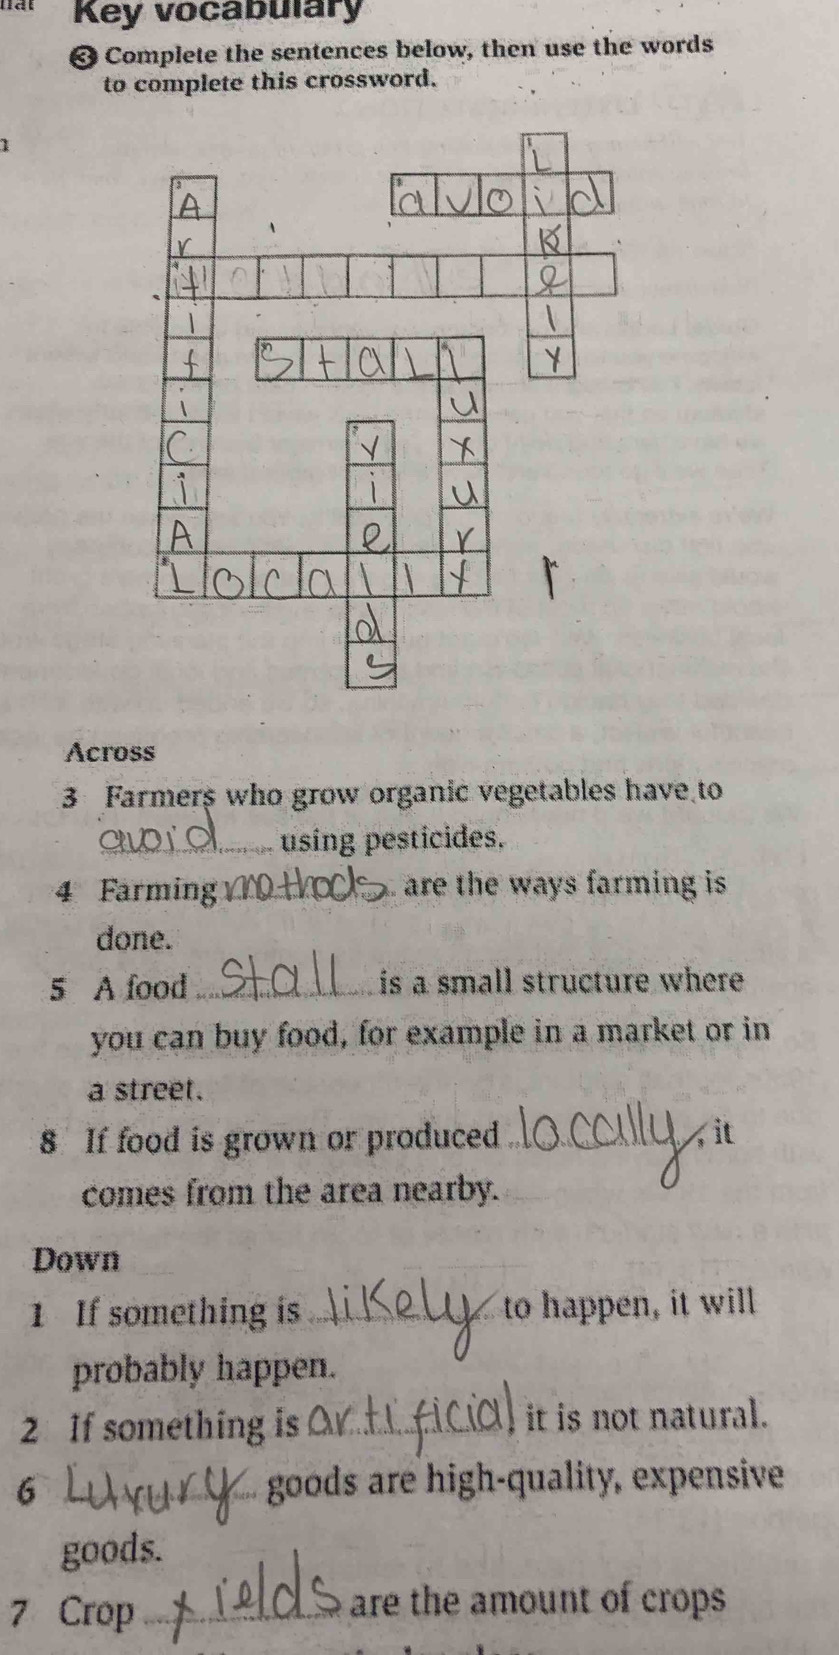 Key vocabulary
3 Complete the sentences below, then use the words
to complete this crossword.
L
A avoid
r k
t e
i l
f stall y
i u
c y x
i i u
A e r
Locally
d
s
Across
3 Farmers who grow organic vegetables have to
avoid using pesticides.
4 Farming methods are the ways farming is
done.
5 A food stall is a small structure where
you can buy food, for example in a market or in
a street.
8 If food is grown or produced locally, it
comes from the area nearby.
Down
1 If something is likely to happen, it will
probably happen.
2 If something is artificial, it is not natural.
6 Luxury goods are high-quality, expensive
goods.
7 Crop yields are the amount of crops